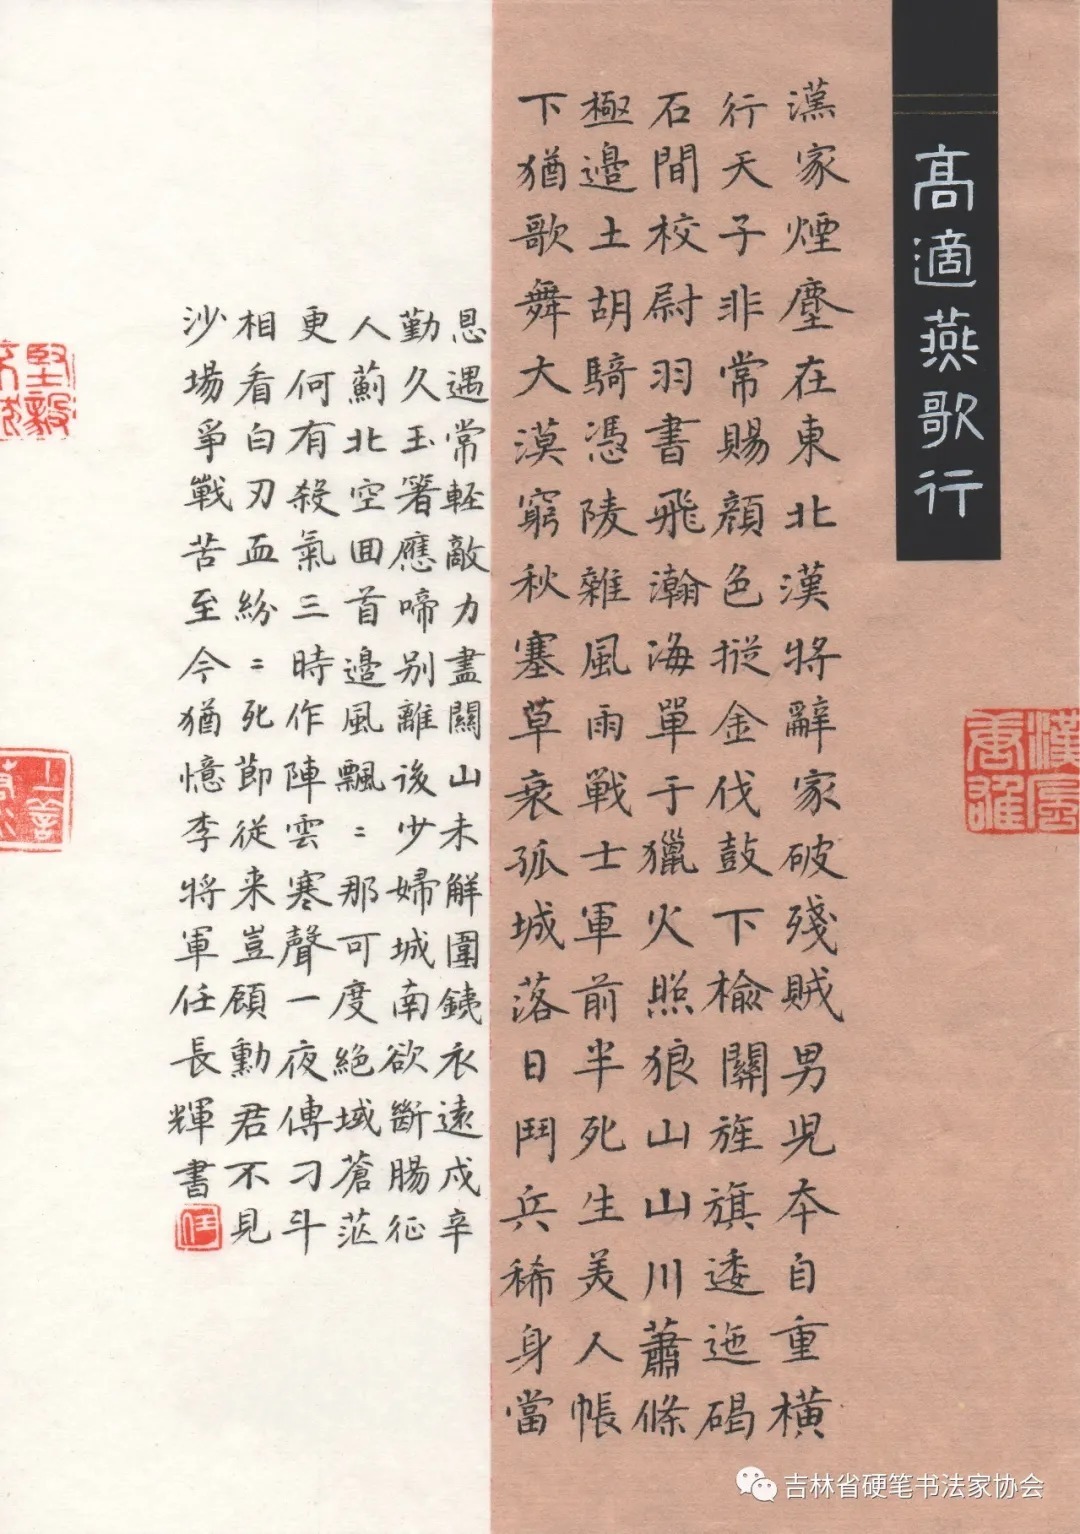 髙適燕歌行
漢家煙塵在東北漢將辭家破殘賊男児本自重橫
行天子非常賜顔色摐金伐鼓下榆關旌旗逶迤碣
石間校尉羽書飛瀚海單于獵火照狼山山川蕭條
極邊土胡騎憑陵雜風雨戦士軍前半死生美人帳
下猶歌舞大漠窮秋塞草衰孤城落日鬥兵稀身當
恩遇常軽敵力盡關山未解圍鐵衣遠戍辛
勤久玉箸應啼别離後少婦城南欲斷腸征
人薊北空囬首邊風飄〻那可度絕域蒼茫
更何有殺氣三時作陣雲寒聲一夜傳刁斗
相看白刃血紛〻死節從来豈顧勳君不見
沙場爭戰苦至今猶憶李將軍任長輝書
任
吉林省硬笔书法家协会